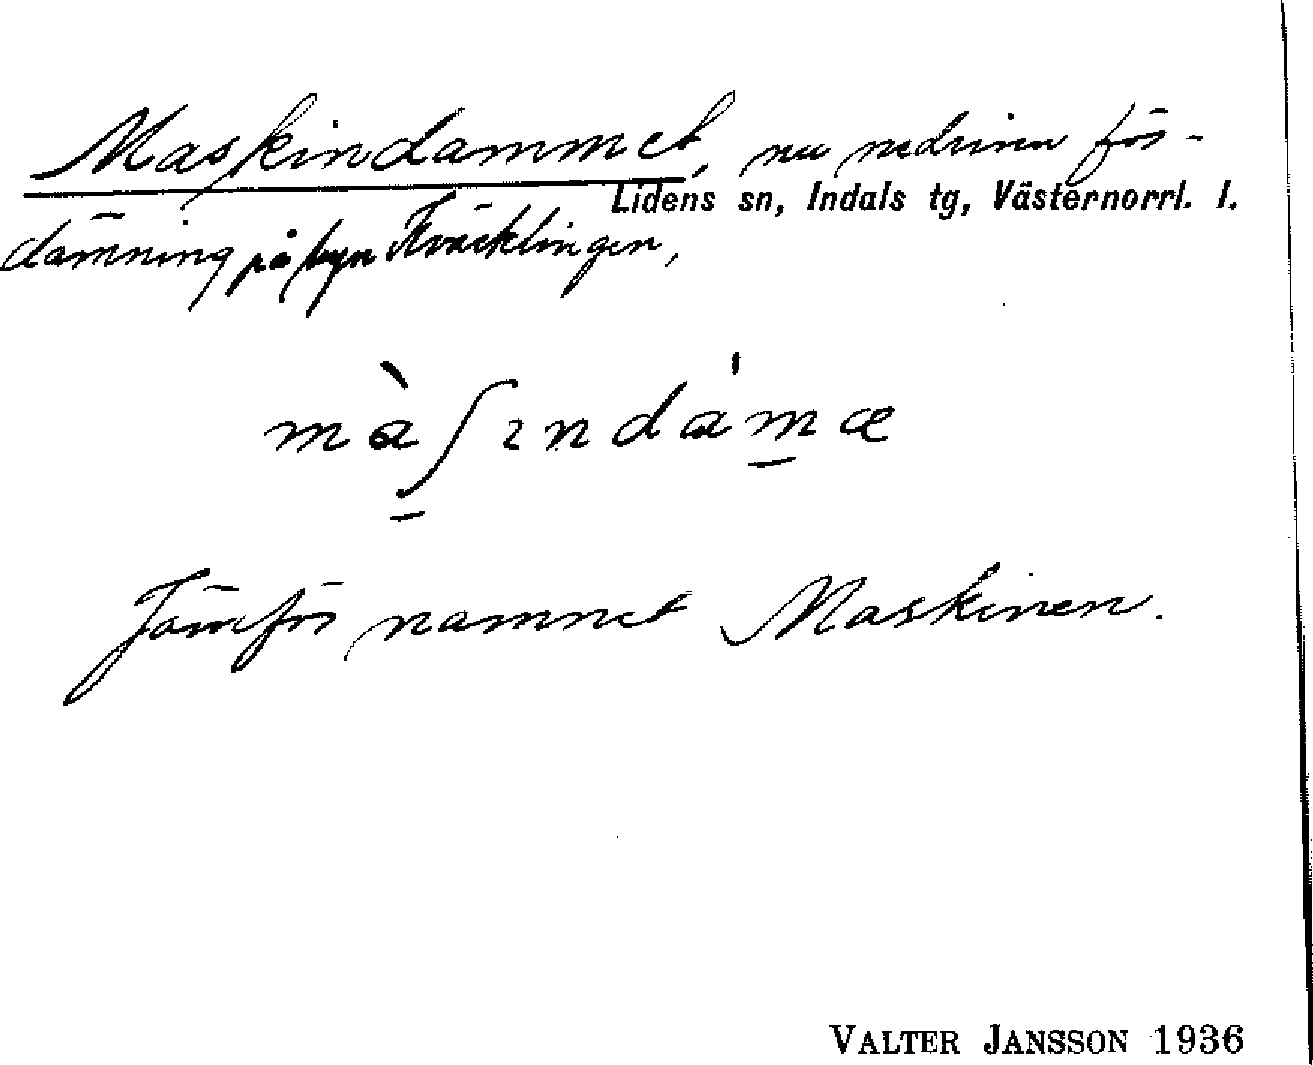 Maskindammet, nu nedriven för-
Lidens sn, Indals tg, Västernorrl. l.
dämning på byn Kväcklingen,
màʃɪndá̍mæ
Jämför namnet Maskinen.
VALTER JANSSON 1936